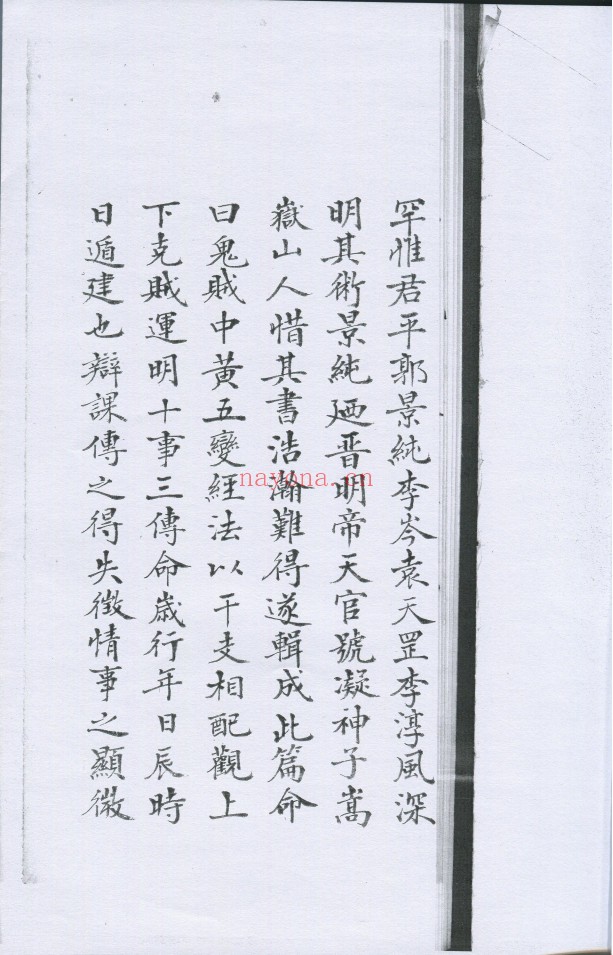 罕惟君平郭景純李岑袁天罡李淳風深
明其術景純廼晋明帝天官號凝神子嵩
嶽山人惜其書浩瀚難得遂輯成此篇命
曰鬼賊中黄五變經法以干支相配觀上
下克賊運明十事三傳命歲行年日辰時
日遁建也辯課傳之得失徵情事之顯微
nayona.cn